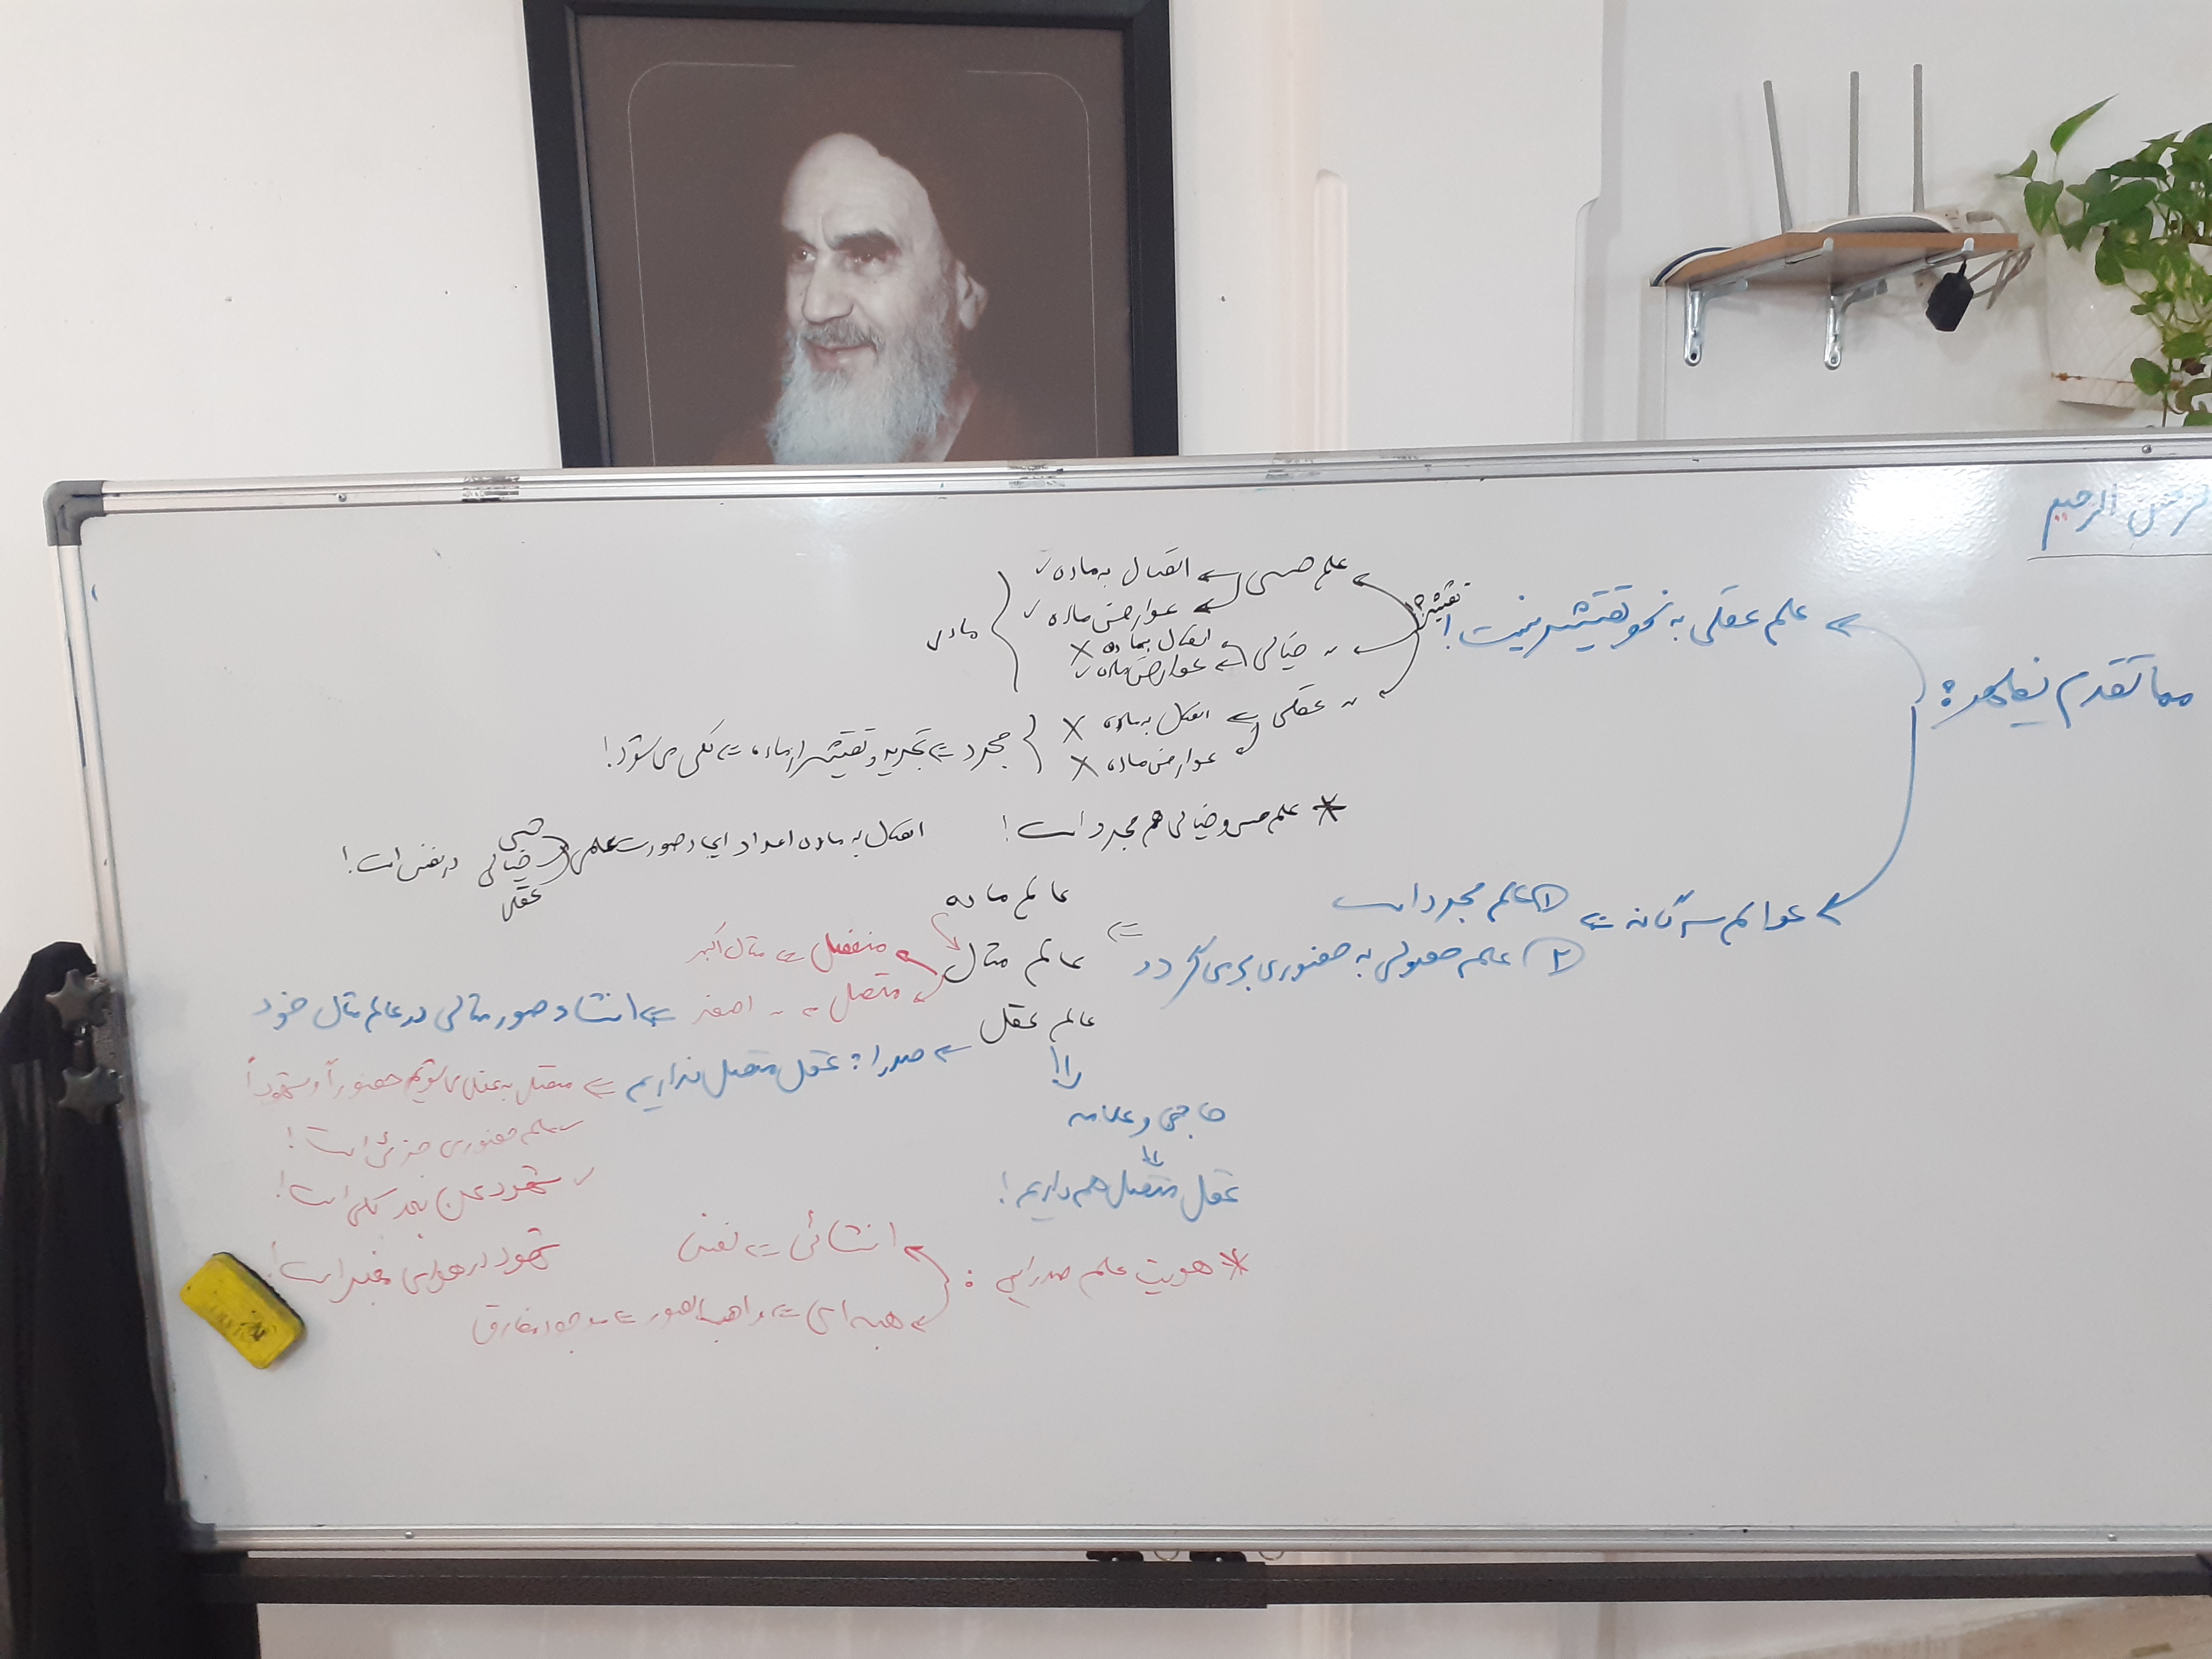 الرحمن الرحیم
مما تقدم یظهر:
علم عقلی به نحو تقشیر نیست!
تقشیر
علم حسی ⇐ اتصال به ماده ✓
عوارض ماده ✓
~ خیالی ⇐ اتصال بماده ×
عوارض ماده ✓
مادی
~ عقلی ⇐ اتصال به ماده ×
عوارض ماده ×
مجرد ⇐ تجرید و تقشیر از ماده ⇐ کلی می شود!
* علم حسی و خیالی هم مجرد است!
اتصال به ماده اعداد ایجاد صورت علمی
حسی
خیالی
عقلی
در نفس است!
عوالم سه گانه ⇐ ① علم مجرد است
② علم حصولی به حضوری بر می گردد ⇐
عالم ماده
عالم مثال
منفصل ⇐ مثال اکبر
متصل ⇐ ~ اصغر ⇐ انشاء صور مثالی در عالم مثال خود
عالم عقل ← صدرا: عقل متصل نداریم ⇐ متصل به عقل می شویم حضوراً و شهوداً
حاجی و علامه
عقل متصل هم داریم!
علم حضوری جزئی است!
✓ شهود عن بعد کلی است!
شهود در هوای مغبر است!
* هویت علم صدرایی:
انشائی ⇐ نفس
هبه ای ⇐ واهب الصور ⇐ موجود مفارق